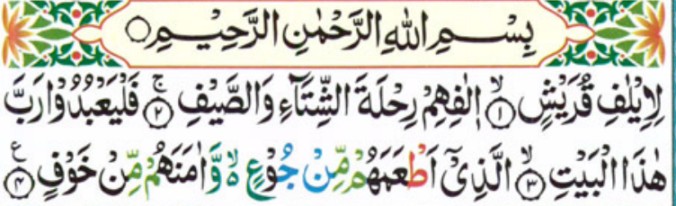 بِسْمِ اللهِ الرَّحْمٰنِ الرَّحِيْمِ
لِاِيْلٰفِ قُرَيْشٍ ۙ﴿۱﴾ اٖلٰفِهِمْ رِحْلَةَ الشِّتَآءِ وَالصَّيْفِ ۚ﴿۲﴾ فَلْيَعْبُدُوْا رَبَّ
هٰذَا الْبَيْتِ ۙ﴿۳﴾ الَّذِيْٓ اَطْعَمَهُمْ مِّنْ جُوْعٍ ۙ۬ وَّاٰمَنَهُمْ مِّنْ خَوْفٍ ۠﴿۴﴾